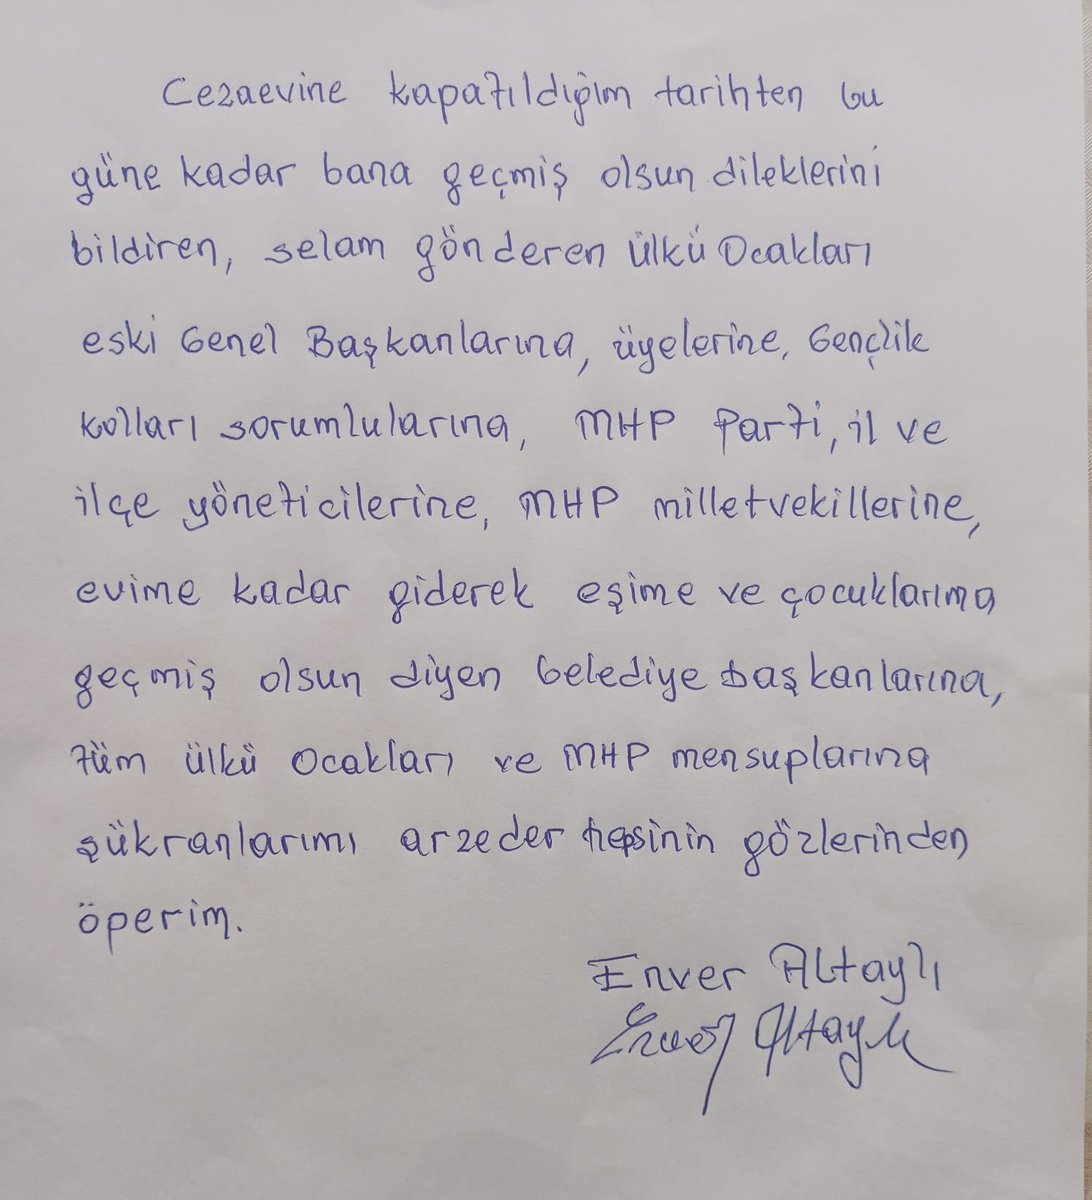 Cezaevine kapatıldığım tarihten bu
güne kadar bana geçmiş olsun dileklerini
bildiren, selam gönderen ülkü Ocakları
eski Genel Başkanlarına, üyelerine, Gençlik
kolları sorumlularına, MHP Parti, il ve
ilçe yöneticilerine, MHP milletvekillerine,
evime kadar giderek eşime ve çocuklarıma
geçmiş olsun diyen belediye başkanlarına,
tüm ülkü Ocakları ve MHP mensuplarına
şükranlarımı arzeder hepsinin gözlerinden
öperim.
Enver Altaylı
Enver Altaylı